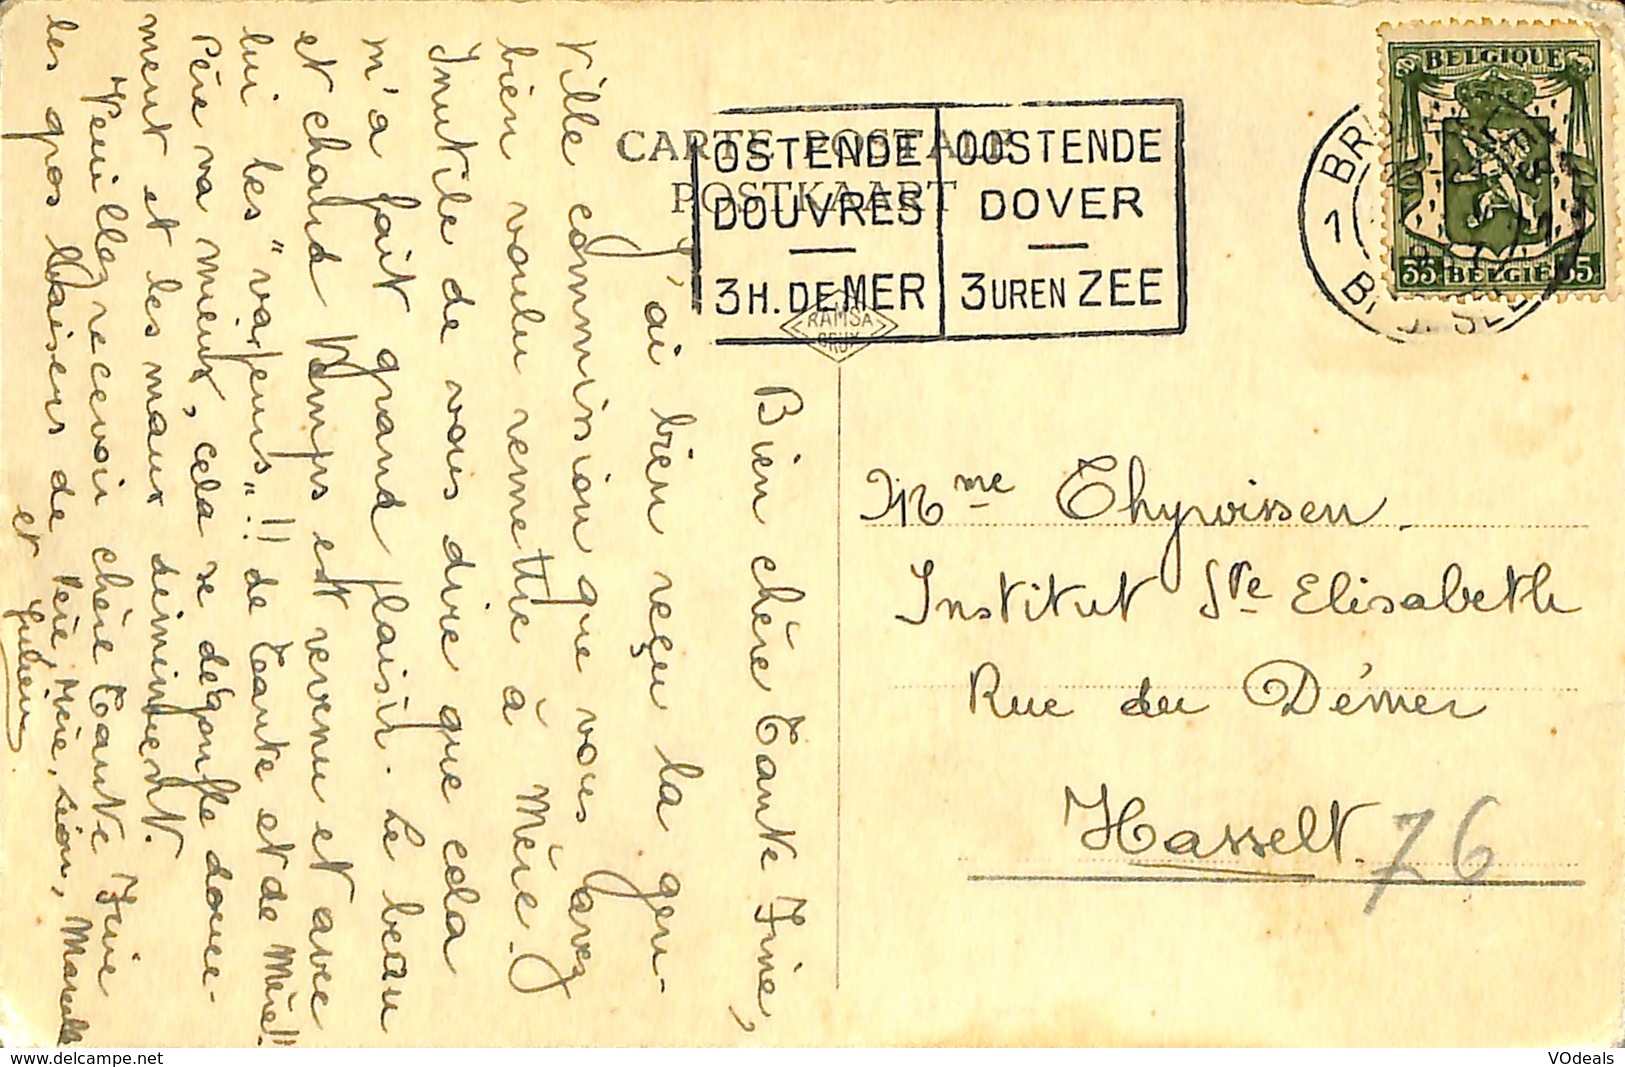 CARTE POSTALE
POSTKAART
OSTENDE
DOUVRES
3 H. DE MER
OOSTENDE
DOVER
3 UREN ZEE
RAMSA
BRUX
BELGIQUE
35 BELGIË 35
1
Bien chère Tante Irène,
J'ai bien reçu la gen-
tille commission que vous avez
bien voulu remettre à Mère.
Inutile de vous dire que cela
m'a fait grand plaisir. Le beau
et chaud temps est revenu et avec
lui les "vajeurs"!! de Tante et de Mère!!
Père va mieux, cela se dégonfle douce-
ment et les maux diminuent.
Veuillez recevoir chère Tante Irène
les gros baisers de Père, Mère, Léon, Marcelle
et Julien
Mme Thyrvissen.
Institut Ste Elisabeth
Rue du Démer
Hasselt.
76
VOdeals
https://www.delcampe.net